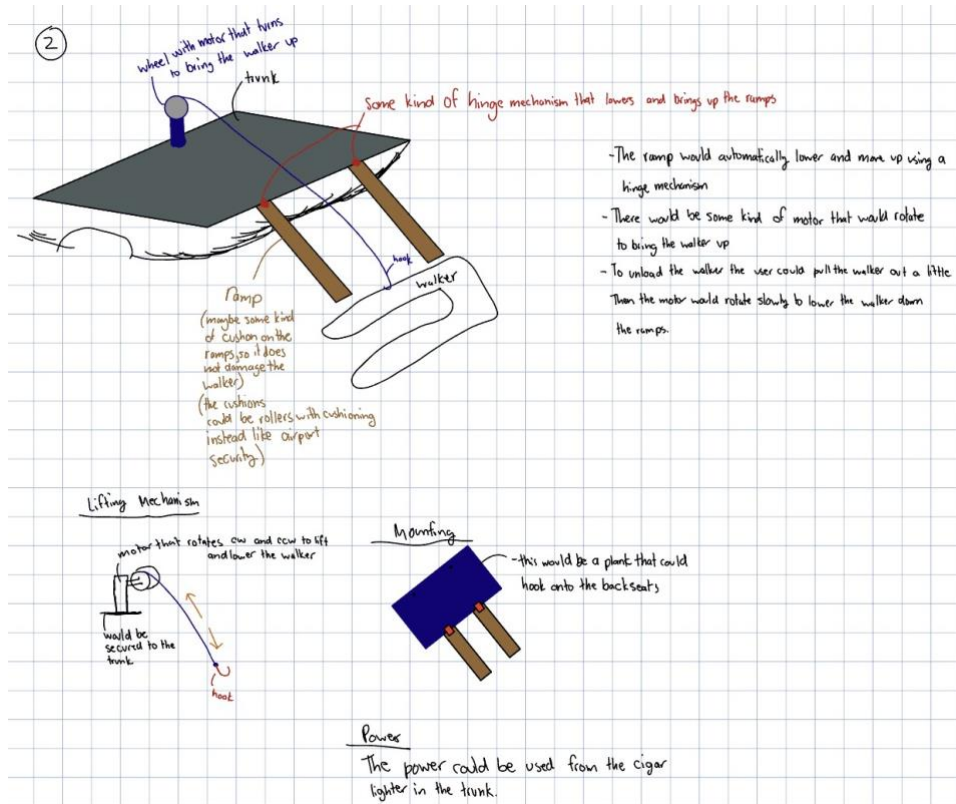 2
wheel with motor that turns
to bring the walker up
trunk
some kind of hinge mechanism that lowers and brings up the ramps
-The ramp would automatically lower and move up using a
hinge mechanism
-There would be some kind of motor that would rotate
to bring the walker up
-To unload the walker the user could pull the walker out a little
Then the motor would rotate slowly to lower the walker down
the ramps.
hook
walker
ramp
(maybe some kind
of cushon on the
ramps, so it does
not damage the
walker)
(the cushions
could be rollers with cushioning
instead like airport
security)
Lifting Mechanism
motor that rotates cw and ccw to lift
and lower the walker
would be
secured to the
trunk
hook
Mounting
-this would be a plank that could
hook onto the backseats
Power
The power could be used from the cigar
lighter in the trunk.